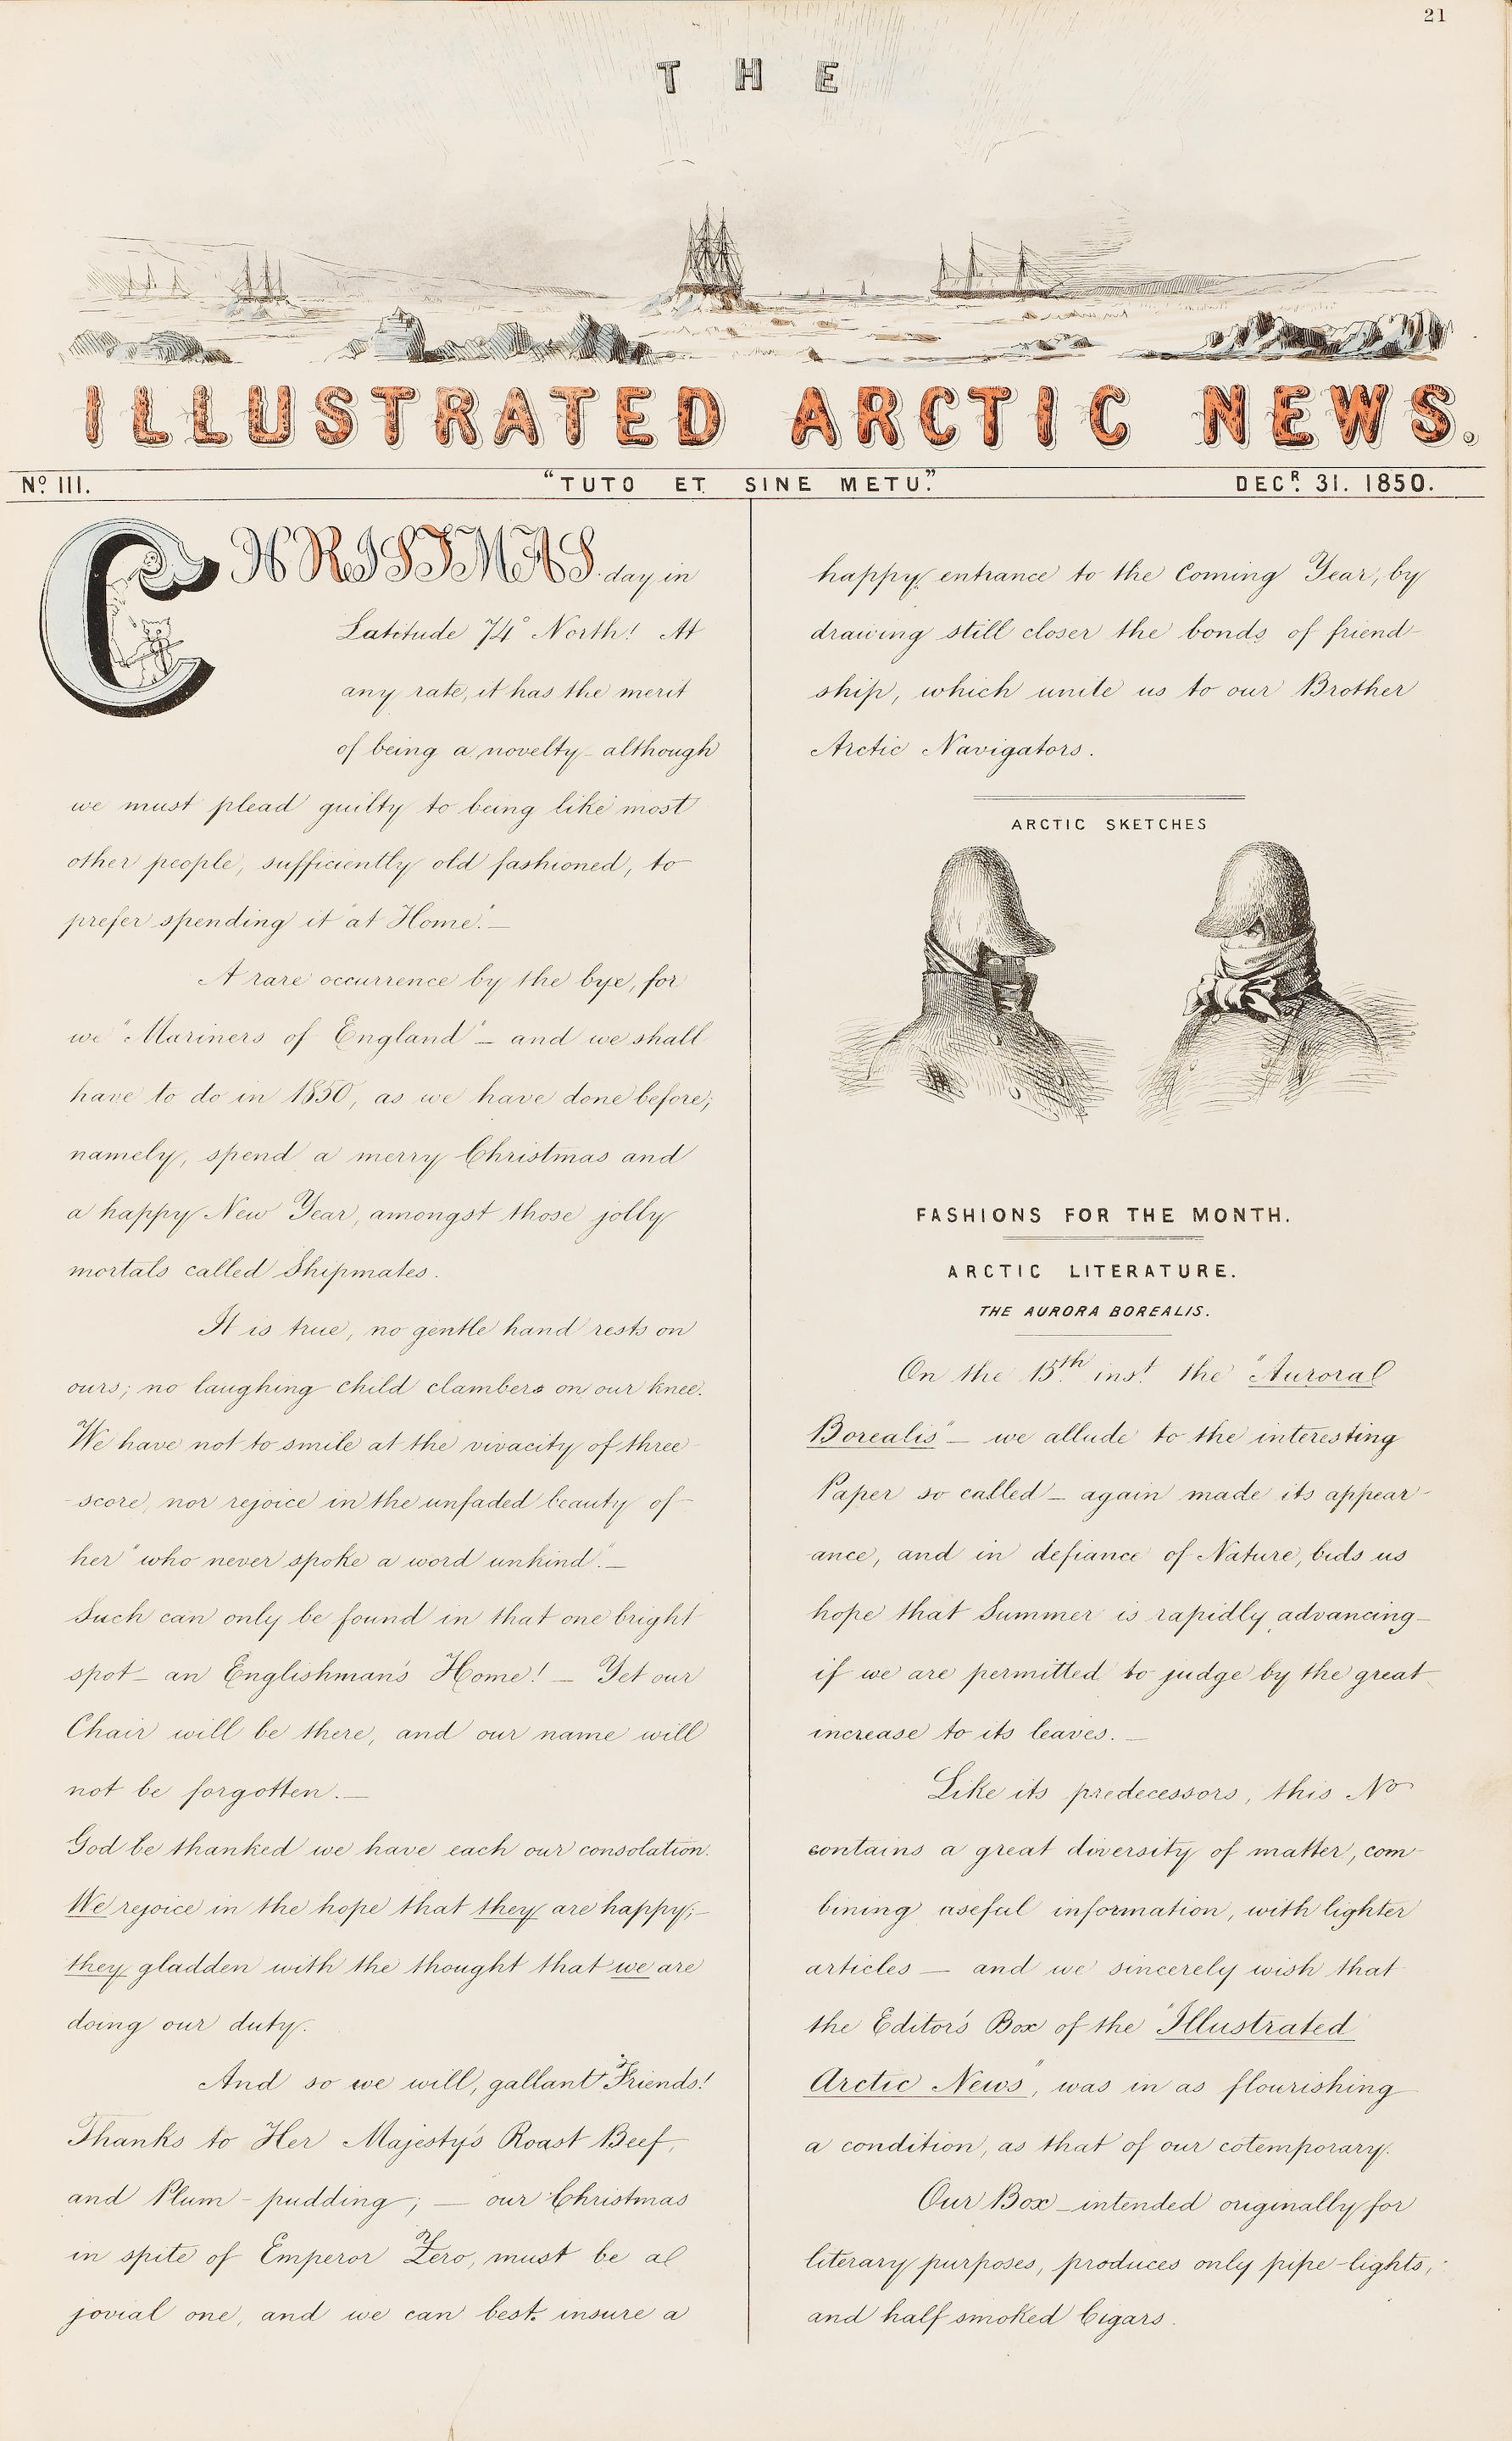 21
THE
ILLUSTRATED ARCTIC NEWS.
No. III.
"TUTO ET SINE METU."
DECR. 31. 1850.
CHRISTMAS day in
Latitude 74° North! At
any rate, it has the merit
of being a novelty – although
we must plead guilty to being like most
other people, sufficiently old fashioned, to
prefer spending it "at Home." –
A rare occurrence by the bye, for
we "Mariners of England" – and we shall
have to do in 1850, as we have done before;
namely, spend a merry Christmas and
a happy New Year, amongst those jolly
mortals called Shipmates.
It is true, no gentle hand rests on
ours; no laughing child clambers on our knee.
We have not to smile at the vivacity of three-
-score, nor rejoice in the unfaded beauty of –
her "who never spoke a word unkind." –
Such can only be found in that one bright
spot – an Englishman's Home! – Yet our
Chair will be there, and our name will
not be forgotten. –
God be thanked we have each our consolation.
We rejoice in the hope that they are happy; –
they gladden with the thought that we are
doing our duty.
And so we will, gallant Friends!
Thanks to Her Majesty's Roast Beef,
and Plum-pudding; – our Christmas
in spite of Emperor Zero, must be al
jovial one, and we can best insure a
happy entrance to the Coming Year, by
drawing still closer the bonds of friend-
ship, which unite us to our Brother
Arctic Navigators.
ARCTIC SKETCHES
FASHIONS FOR THE MONTH.
ARCTIC LITERATURE.
THE AURORA BOREALIS.
On the 15th inst the "Auroral
Borealis" – we allude to the interesting
Paper so called – again made its appear-
ance, and in defiance of Nature, bids us
hope that Summer is rapidly advancing –
if we are permitted to judge by the great
increase to its leaves. –
Like its predecessors, this No
contains a great diversity of matter, com-
bining useful information, with lighter
articles – and we sincerely wish that
the Editor's Box of the "Illustrated
Arctic News", was in as flourishing
a condition, as that of our cotemporary.
Our Box – intended originally for
literary purposes, produces only pipe-lights,
and half smoked Cigars.